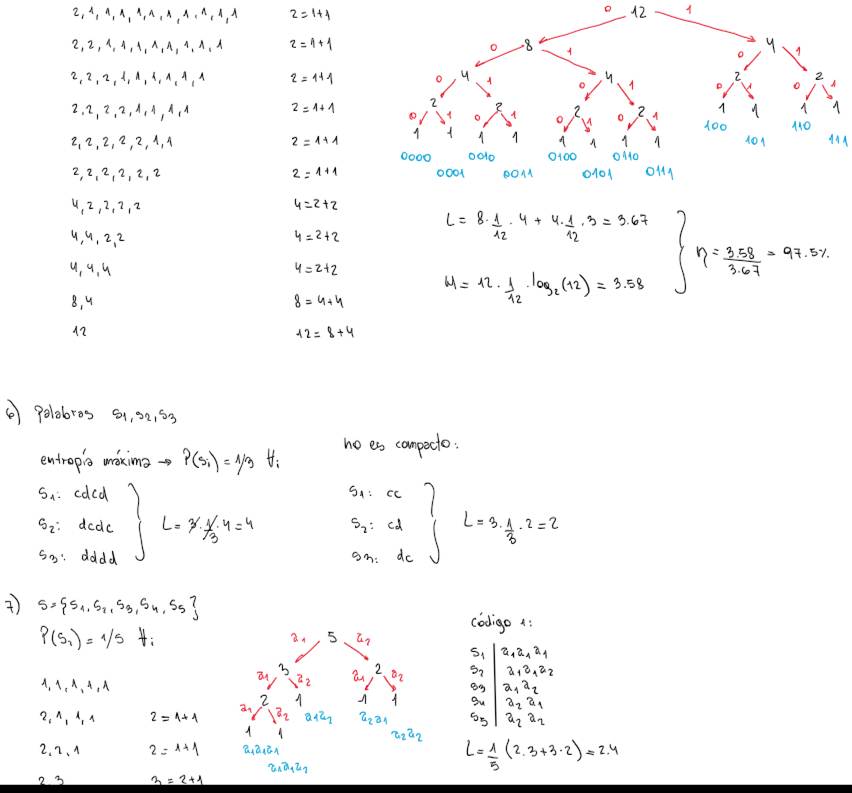 2,1,1,1,1,1,1,1,1,1,1 2=1+1
2,2,1,1,1,1,1,1,1,1 2=1+1
2,2,2,1,1,1,1,1,1 2=1+1
2,2,2,2,1,1,1,1 2=1+1
2,2,2,2,2,1,1 2=1+1
2,2,2,2,2,2 2=1+1
4,2,2,2,2 4=2+2
4,4,2,2 4=2+2
4,4,4 4=2+2
8,4 8=4+4
12 12=8+4
0 12 1
0 8 1 0 4 1
0 4 1 0 4 1 0 2 1 0 2 1
0 2 1 0 2 1 0 2 1 0 2 1 1 1 1 1
1 1 1 1 1 1 1 1 100 101 110 111
0000 0001 0010 0011 0100 0101 0110 0111
L= 8·1/12·4 + 4·1/12·3 = 3.67
H= 12·1/12·log₂(12) = 3.58
η= 3.58/3.67 = 97.5%
6) Palabras S1,S2,S3
entropía máxima → P(Si) = 1/3 ∀i
S1: cdcd
S2: dcdc
S3: dddd
L= 3·1/3·4=4
no es compacto:
S1: cc
S2: cd
S3: dc
L=3·1/3·2=2
7) S={S1,S2,S3,S4,S5}
P(Si)=1/5 ∀i
1,1,1,1,1
2,1,1,1 2=1+1
2,2,1 2=1+1
2,3 3=2+1
a1 5 a2
a1 3 a2 a1 2 a2
a1 2 a2 1 1 1
1 1 a1a2 a2a1 a2a2
a1a1a1 a1a1a2
código 1:
S1 a1a1a1
S2 a1a1a2
S3 a1a2
S4 a2a1
S5 a2a2
L=1/5(2·3+3·2)=2.4